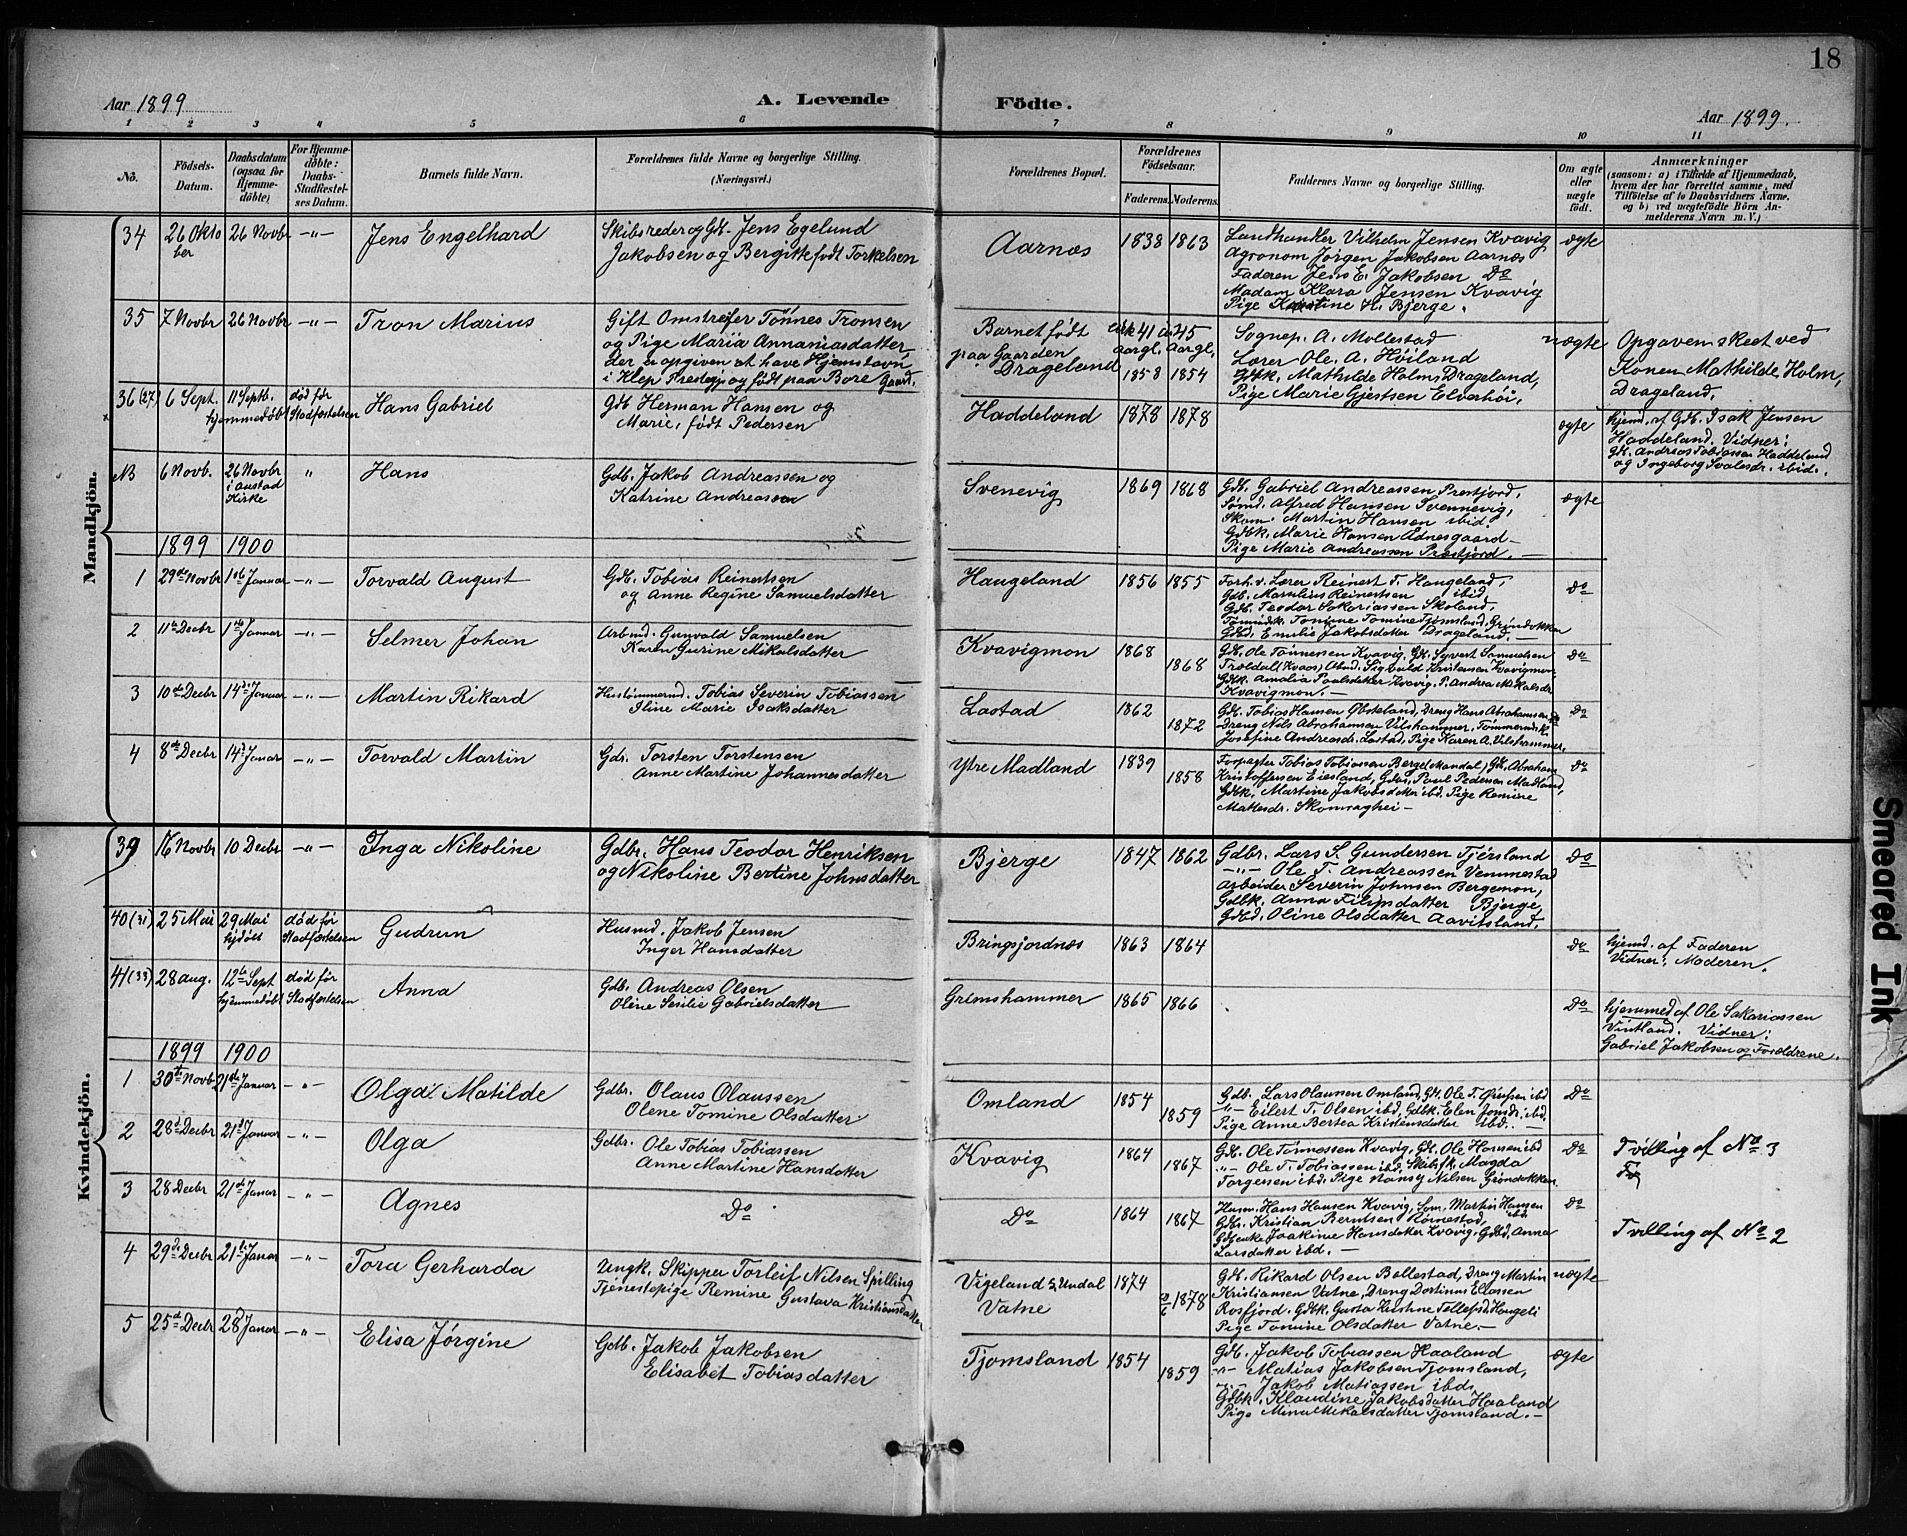 18
Aar 1899
A. Levende
Födte.
Aar 1899.
1 2 3 4 5 6 7 8 9 10 11
No.
Födsels-
Datum.
Daabsdatum
(ogsaa for
Hjemme-
döbte)
For Hjemme-
döbte:
Daabs-
Stadfæstel-
ses Datum.
Barnets fulde Navn.
Forældrenes fulde Navne og borgerlige Stilling.
(Næringsvei.)
Forældrenes Bopæl.
Forældrenes
Fødselsaar.
Faderens.
Moderens.
Faddernes Navne og borgerlige Stilling.
Om ægte
eller
uægte
født.
Anmærkninger
(saasom: a) i Tilfælde af Hjemmedaab,
hvem der har forrettet samme, med
Tilföielse af to Daabsvidners Navne.
og b) ved uægtefödte Börn An-
melderens Navn m. V.)
Mandkjön.
34
26 Okto
ber
26 Novbr
-"-
Jens Engelhard
Skibsreder og Gdb. Jens Egelund
Jakobsen og Bergitte født Torkelsen
Aarnæs
1838
1863
Landhandler Vilhelm Jensen Kvavig
Agronom Jørgen Jakobsen Aarnæs
Faderen Jens E. Jakobsen Do
Madam Klara Jensen Kvavig
Pige Kristine H. Bjerge.
ægte
35
7 Novbr
26 Novbr
-"-
Tron Marius
Gift Omstreifer Tönnes Tronsen
og Pige Maria Annaniasdatter,
der er opgiven at have Hjemstavn
i Klep Prestegj. og født paa Bore Gaard.
Barnet født
paa Gaarden
Drageland
cirk 41
aar gl.
1858
ca 45
aar gl,
1854
Sognep. A. Mollestad
Lærer Ole. A. Höiland
Gdbk. Mathilde Holm, Drageland,
Pige Marie Gjestsen Elverhöi,
uægte
Opgaven skeet ved
Konen Mathilde Holm,
Drageland,
36 (27)
6 Sept.
11 Septb.
hjemmedøbt
død før
Stadfæstelsen
Hans Gabriel
Gdb Herman Hansen og
Marie, født Pedersen
Haddeland
1878
1878
ægte
hjemd. af Gdb. Isak Jensen
Haddeland. Vidner:
Gdb. Andreas Tobiassen Haddeland
og Ingeborg Svalesdr. ibid.
NB
6 Novb.
26 Novbr
i Austad
Kirke
"
Hans
Gdb. Jakob Andreassen og
Katrine Andreassen
Svenevig
1869
1868
Gdb. Gabriel Andreassen Prestjord,
Sømd. Alfred Hansen Svennevig,
Skom. Martin Hansen ibid.
Gdbk. Marie Hansen Ednesgaard-
Pige Marie Andreassen Prestfjord. -
ægte
1899
1900
1
29de Novbr
1ste Januar
-"-
Torvald August
Gdb. Tobias Reinertsen
og Anne Regine Samuelsdatter
Haugeland
1856
1855
Forh. v. Lærer Reinert T. Haugeland,
Gdb. Marselius Reinertsen ibid
Gdb. Teodor Sakariassen Skoland,
Tomine Tomine Tjomsland, Gründokken
Gdbd. Emilie Jakobsdatter Drageland. -
Do
2
11te Decbr
1ste Januar
-"-
Selmer Johan
Arbmd. Gunvald Samuelsen
Karen Gurine Mikalsdatter
Kvavigmon
1868
1868
Gdb. Ole Tönnessen Kvavig, Gdb. Syvert Samuelsen
Trældal (Kvaas) Abmd. Sigvald Kristensen Kvavigmon
Gdbk. Amalia Paulsdatter Kvavig. P. Andrea Mikalsdr
Kvavigmon. -
Do
3
10de Decbr
14de Januar
-"-
Martin Rikard
Hustømmermd. Tobias Severin Tobiassen
Iline Marie Isaksdatter
Lastad
1862
1872
Gdb. Tobias Hansen Øbsteland, Dreng Hans Abrahamsen
Dreng Nils Abrahamsen Vilshammer, Tømmermdsk.
Josefine Andreasdr. Lastad, Pige Karen A. Vilshammer,
Do
4
8de Decbr
14de Januar
-"-
Torvald Martin
Gdb. Torsten Torstensen
Anne Martine Johannesdatter
Ytre Madland
1839
1858
Forpagter Tobias Tobiassen Berge (Mandal), Gdb. Abraham
Kristoffersen Eiesland, Gdbs. Paul Pedersen Madland,
Gdbk. Martine Jakobsdatter ibd. Pige Remine
Mattesdr. Skomraghei -
Do
Kvindekjön.
39
16 Novbr
10 Decbr
-"-
Inga Nikoline
Gdbr. Hans Teodor Henriksen
og Nikoline Bertine Johnsdatter
Bjerge
1847
1862
Gdbr. Lars S. Gundersen Tjersland
-"- Ole T. Andreassen Vemmestad
Arbeider Severin Johnsen Bergemon,
Gdbk. Anna Filipsdatter Bjerge,
Gdbd. Oline Olsdatter Aavitsland.
Do
40 (31)
25 Mai
29 Mai
hjdöbt
död før
Stadfæstelsen
Gudrun
Husmd. Jakob Jensen
Inger Hansdatter
Bringsjordnæs
1863
1864
Do
hjemd. af Faderen
Vidner: Moderen.
41 (33)
28 aug.
12te Sept
hjemmedøbt
död før
Stadfæstelsen
Anna
Gdb. Andreas Olsen
Oline Serilie Gabrielsdatter
Grimshammer
1865
1866
Do
hjemmed af Ole Sakariassen
Vintland. Vidner:
Gabriel Jakobsen og Forældrene.
1899
1900
1
30te Novbr
21de Januar
-"-
Olga Matilde
Gdbr. Olaus Olaussen
Olene Tomine Olsdatter
Omland
1854
1859
Gdb. Lars Olaussen Omland, Gdb. Ole T. Grufsen ibd
-"- Eilert T. Olsen ibd, Gdbk. Elen Jonsdr. ibd,
Pige Anne Bertea Kristensdatter ibd. -
Do
2
28de Decbr
21de Januar
-"-
Olga
Gdbr. Ole Tobias Tobiassen
Anne Martine Hansdatter
Kvavig
1864
1867
Gdb. Ole Tönnessen Kvavig, Gdb. Ole Hansen ibd
-"- Ole T. Tobiassen ibd, Skibsfk. Magda
Torgersen ibd. Pige Nansy Nilsen Gröndokken
Do
Tvilling af No 3
3
28 Decbr
21de Januar
-"-
Agnes
Do
Do
1864
1867
Husm. Hans Hansen Kvavig, Søm. Martin Hansen ibd
Gdb. Kristian Berntsen Rømestad,
Gdb enke Joakine Hansdatter Kvavig, Gdbd, Anna
Larsdatter ibd. -
Do
Tvilling af No 2
4
29de Decbr
21de Januar
-"-
Tora Gerharda
Ungk. Skipper Torleif Nilsen Spilling
Tjenestepige Remine Gustava Kristiansdatter
Vigeland S. Undal
Vatne
1874
1878
Gdb. Rikard Olsen Bollestad, Dreng Martin
Kristiansen Vatne, Dreng Dortinus Eliassen
Rosfjord, Gdbk. Gusta Kristine Tellefsd. Haugeli
Pige Tomine Olsdatter Vatne. -
uægte
5
25de Decbr
28de Januar
-"-
Elisa Jørgine
Gdb. Jakob Jakobsen
Elisabet Tobiasdatter
Tjomsland
1854
1859
Gdb. Jakob Tobiassen Haaland
-"- Matias Jakobsen Tjomsland,
-"- Jakob Matiassen ibd,
Gdbk. Klaudine Jakobsdatter Haaland
Pige Mina Mikalsdatter Tjomsland. -
ægte
Smeared Ink